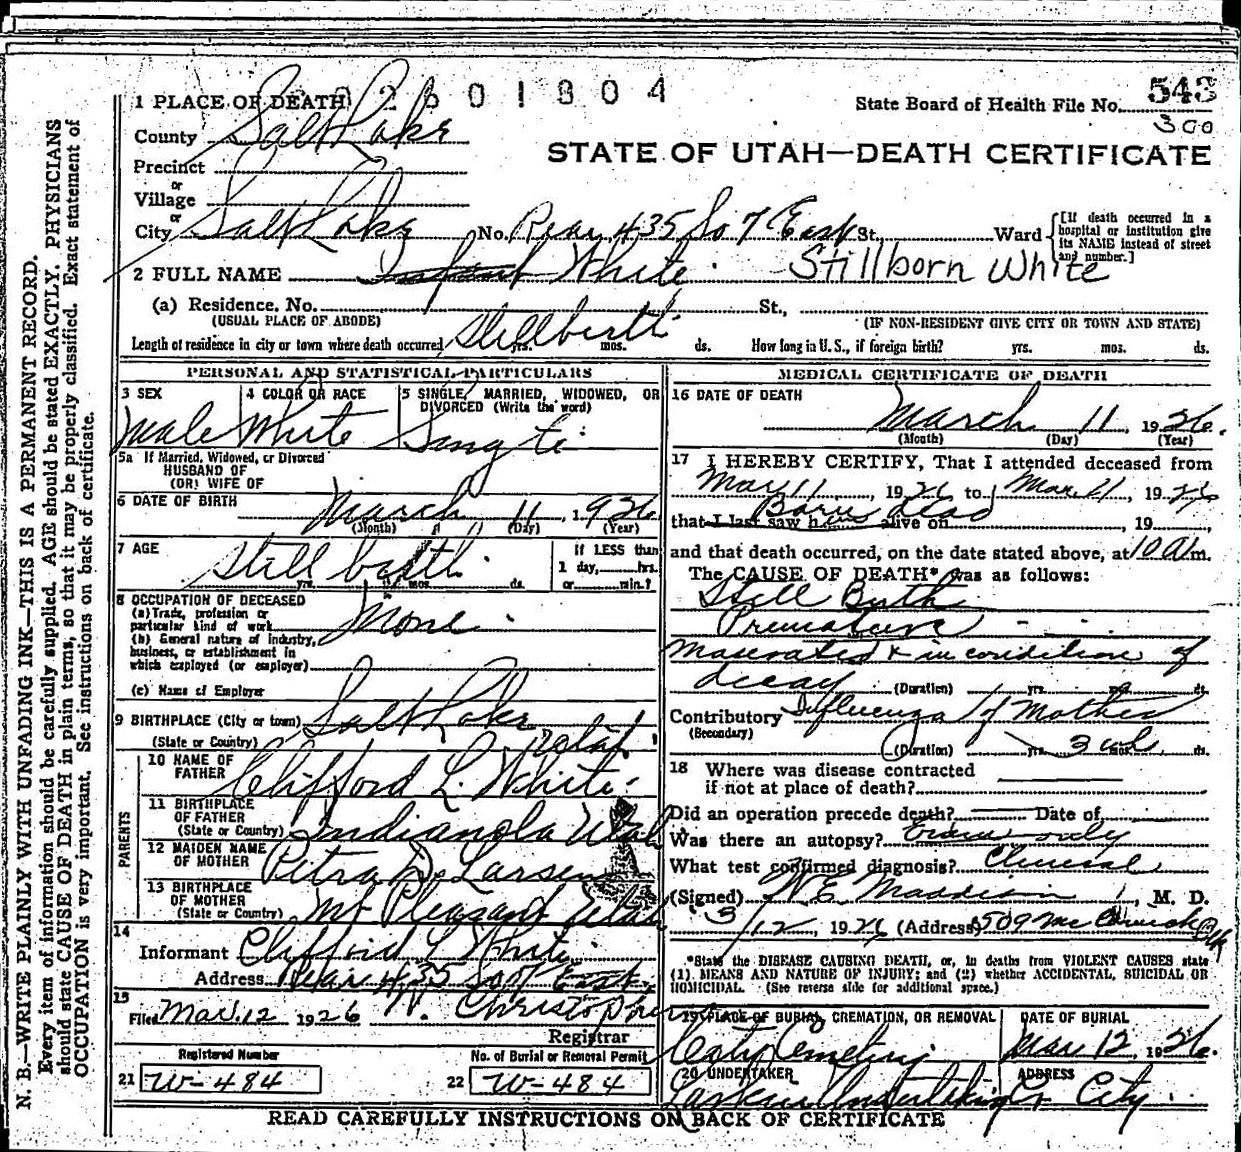 2601804
543
1 PLACE OF DEATH
State Board of Health File No.
300
County Salt Lake
STATE OF UTAH—DEATH CERTIFICATE
Precinct
or
Village
or
City Salt Lake No. Rear 435 So 7 East St. Ward
[If death occurred in a hospital or institution give its NAME instead of street and number.]
2 FULL NAME Infant White Stillborn White
(a) Residence. No. St.,
(USUAL PLACE OF ABODE) (IF NON-RESIDENT GIVE CITY OR TOWN AND STATE)
Length of residence in city or town where death occurred Stillbirth yrs. mos. ds. How long in U. S., if foreign birth? yrs. mos. ds.
PERSONAL AND STATISTICAL PARTICULARS
3 SEX 4 COLOR OR RACE 5 SINGLE, MARRIED, WIDOWED, OR DIVORCED (Write the word)
Male White Single
5a If Married, Widowed, or Divorced
HUSBAND OF
(OR) WIFE OF
6 DATE OF BIRTH March 11 1926
(Month) (Day) (Year)
7 AGE Still birth
yrs. mos. ds.
If LESS than
1 day, hrs.
or min.?
8 OCCUPATION OF DECEASED
(a) Trade, profession or
particular kind of work None
(b) General nature of industry,
business, or establishment in
which employed (or employer)
(c) Name of Employer
9 BIRTHPLACE (City or town) Salt Lake
(State or Country) Utah
PARENTS
10 NAME OF FATHER Clifford L. White
11 BIRTHPLACE OF FATHER (State or Country) Indianola Utah
12 MAIDEN NAME OF MOTHER Petra D. Larsen
13 BIRTHPLACE OF MOTHER (State or Country) Mt Pleasant Utah
14
Informant Clifford L White
Address Rear 435 So 7 East
15
Filed Mar. 12 1926 N. Christopherson
Registrar
Registered Number No. of Burial or Removal Permit
21 W-484 22 W-484
MEDICAL CERTIFICATE OF DEATH
16 DATE OF DEATH
March 11 1926.
(Month) (Day) (Year)
17 I HEREBY CERTIFY, That I attended deceased from
Mar 11, 1926 to Mar. 11, 1926
Born dead
that I last saw him alive on , 19 ,
and that death occurred, on the date stated above, at 10 a m.
The CAUSE OF DEATH* was as follows:
Still Birth
Premature
Macerated & in condition of
decay (Duration) yrs. mo ds.
Contributory Influenza of Mother
(Secondary)
(Duration) yrs. 3 wk. ds.
18 Where was disease contracted
if not at place of death?
Did an operation precede death? Date of
Was there an autopsy? Exam only
What test confirmed diagnosis? Clinical
(Signed) N. E. Maddison, M. D.
3/12, 1926 (Address) 509 McCornick Bldg
*State the DISEASE CAUSING DEATH, or, in deaths from VIOLENT CAUSES state
(1) MEANS AND NATURE OF INJURY; and (2) whether ACCIDENTAL, SUICIDAL OR
HOMICIDAL. (See reverse side for additional space.)
19 PLACE OF BURIAL, CREMATION, OR REMOVAL DATE OF BURIAL
City Cemetery Mar 12, 1926.
20 UNDERTAKER ADDRESS
Larkin Undertaking Co City
READ CAREFULLY INSTRUCTIONS ON BACK OF CERTIFICATE
N. B.—WRITE PLAINLY WITH UNFADING INK—THIS IS A PERMANENT RECORD.
Every item of information should be carefully supplied. AGE should be stated EXACTLY. PHYSICIANS
should state CAUSE OF DEATH in plain terms, so that it may be properly classified. Exact statement of
OCCUPATION is very important. See instructions on back of certificate.